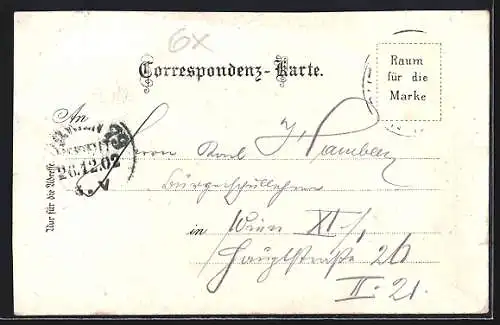 6x
Correspondenz-Karte.
Raum
für die
Marke
An
Herrn Karl
Bürgerschullehrer
in Wien XI/1
Hauptstraße 26
II. 21.
Nur für die Adresse.
26.12.02